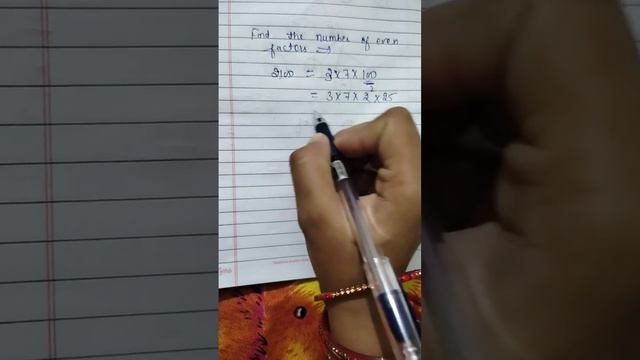 Find the number of even
factors →
2100 = 3×7×100
= 3×7×2²×25